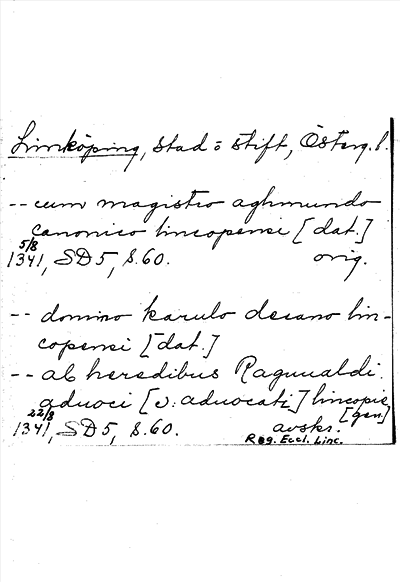 Linköping, stad o stift, Österg. l.
-- cum magistro aghmundo
canonico lincopensi [dat.]
5/8
1341, SD 5, S. 60. orig.
-- domino karulo decano lin-
copensi [dat.]
-- ab heredibus Ragualdi
aduoci [v: aduocati] lincopie
[gen]
22/8
1341, SD 5, S. 60. avskr.
Reg. Eccl. Linc.